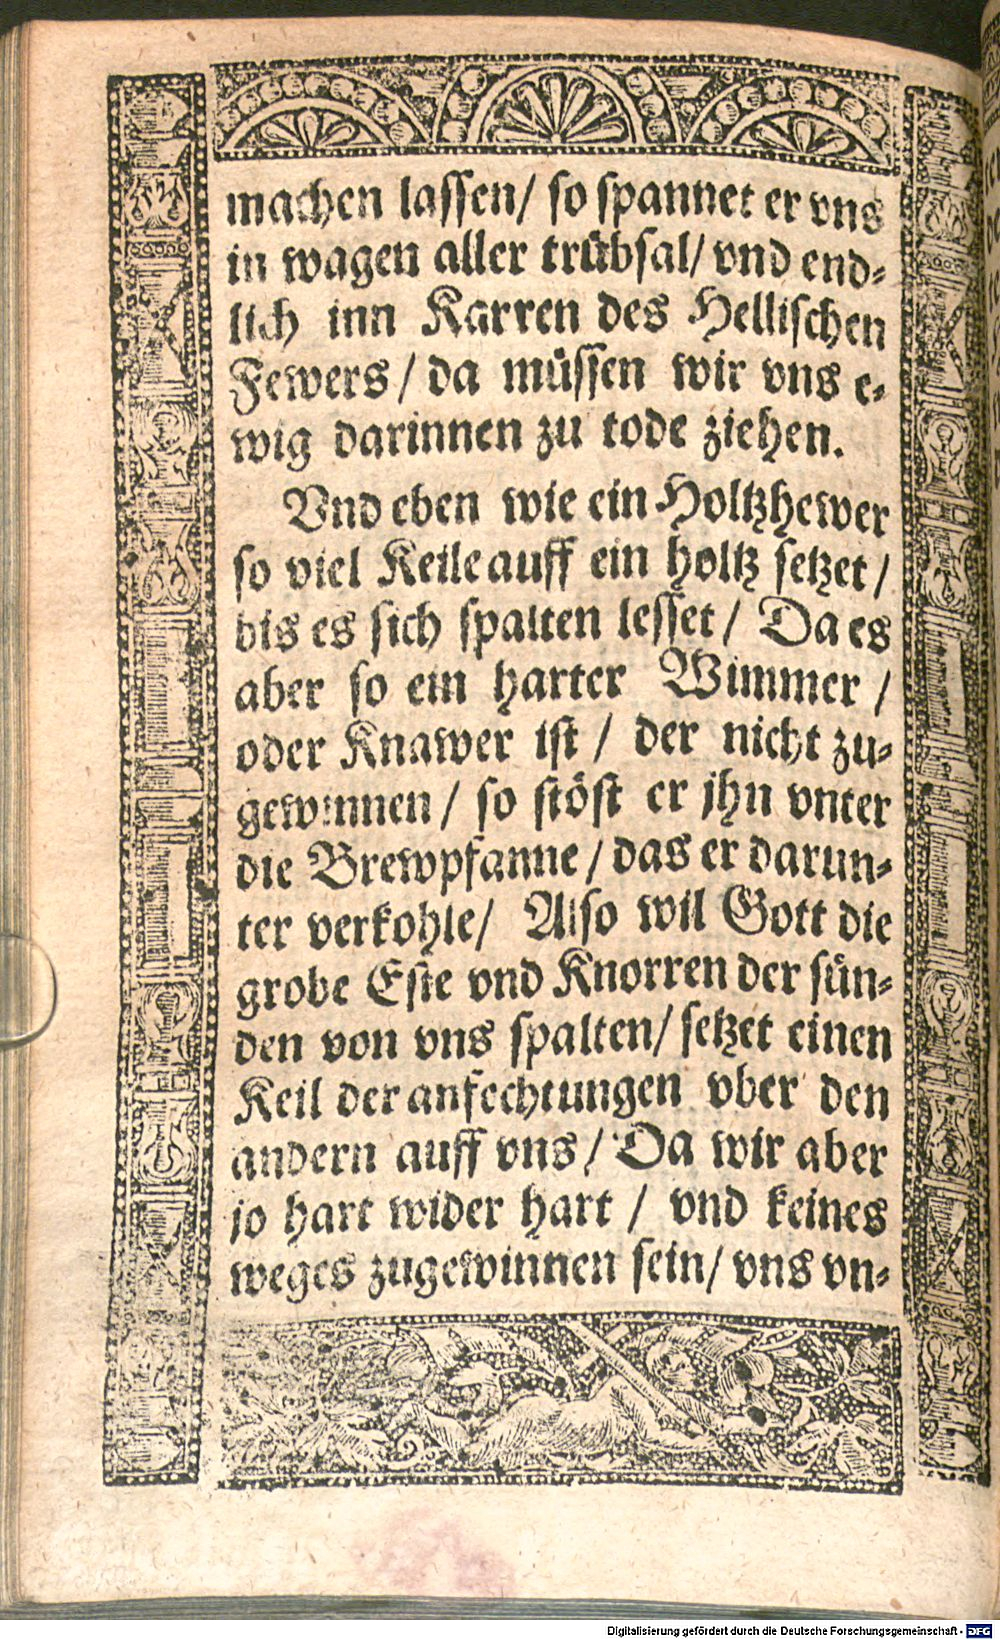 machen lassen/ so spannet er vns
in wagen aller trübsal/ vnd end⸗
lich inn Karren des Hellischen
Fewers/ da müssen wir vns e⸗
wig darinnen zu tode ziehen.
Vnd eben wie ein Holtzhewer
so viel Keile auff ein holtz setzet/
bis es sich spalten lesset/ Da es
aber so ein harter Wimmer/
oder Knawer ist/ der nicht zu⸗
gewinnen/ so stöst er jhn vnter
die Brewpfanne/ das er darun⸗
ter verkohle/ Also wil Gott die
grobe Este vnd Knorren der sün⸗
den von vns spalten/ setzet einen
Keil der anfechtungen vber den
andern auff vns/ Da wir aber
jo hart wider hart/ vnd keines
weges zugewinnen sein/ vns vn⸗
Digitalisierung gefördert durch die Deutsche Forschungsgemeinschaft - DFG